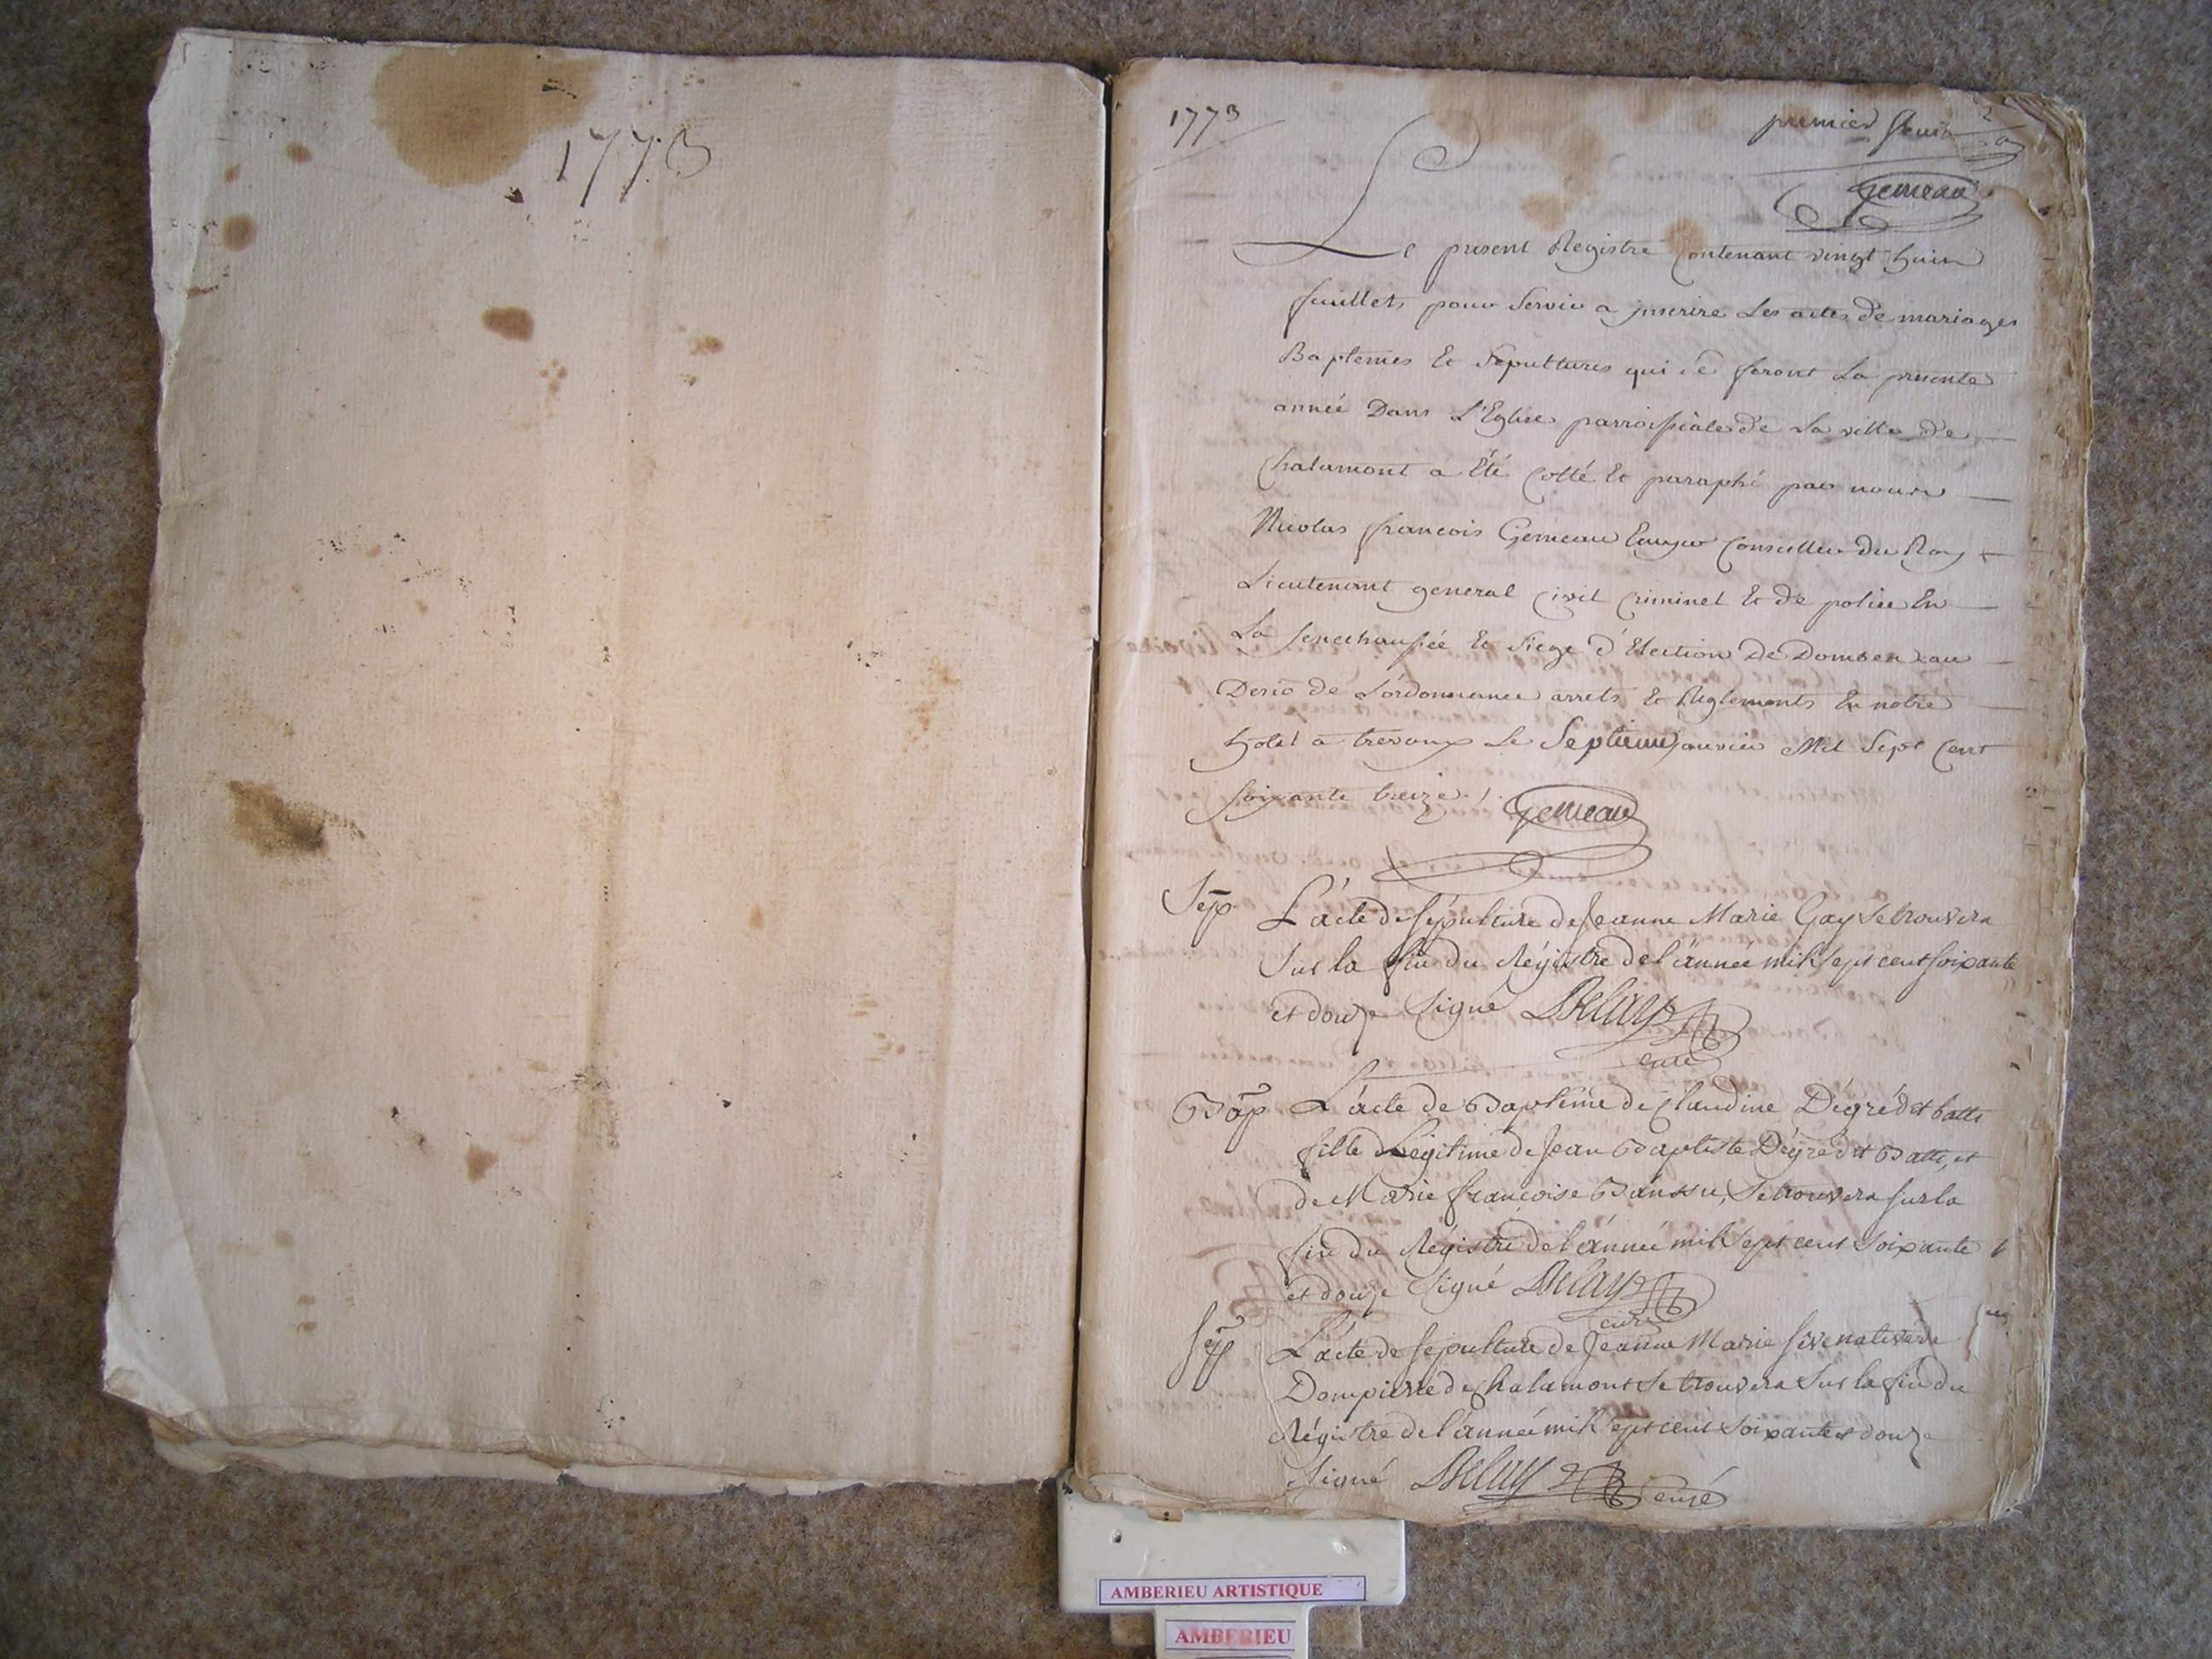 1773
1773
premier feuillet
Gemeau
Le present Registre Contenant vingt huit
feuillets pour Servir a jnscrire Les actes de mariages
Baptemes Et Sepultures qui se feront La presente
année Dans L'Eglise parroissiale de La ville de
Chalamont a Eté Cotté Et paraphé par nous
Nicolas francois Gemeau Ecuyer Conseiller Du Roy
Lieutenant general Civil Criminel Et de police En
La Senechaussée Et Siege d'Election De Dombes au
Desir de L'ordonnance arrets Et Reglements En notre
hotel a trevoux Le Septieme janvier Mil Sept Cent
soixante treize ./.
Gemeau
Sep L'acte de Sépulture de Jeanne Marie Gay Se trouvera
Sur la fin du Régistre de l'année mil Sept cent soixante
et douze Signé Delay
curé
Bap L'acte de Baptême de Claudine Dégré dit batti
fille Légitime de Jean Baptiste Dégré dit Batti, et
de Marie francoise Banssu, Se trouvera sur la
fin du Régistre de l'année mil Sept cent Soixante
et douze Signé Delay
curé
Sep L'acte de Sépulture de Jeanne Marie native de
Dompierre de Chalamont Se trouvera Sur la fin du
Régistre de l'année mil Sept cent Soixante et douze
Signé Delay curé
AMBERIEU ARTISTIQUE
AMBERIEU